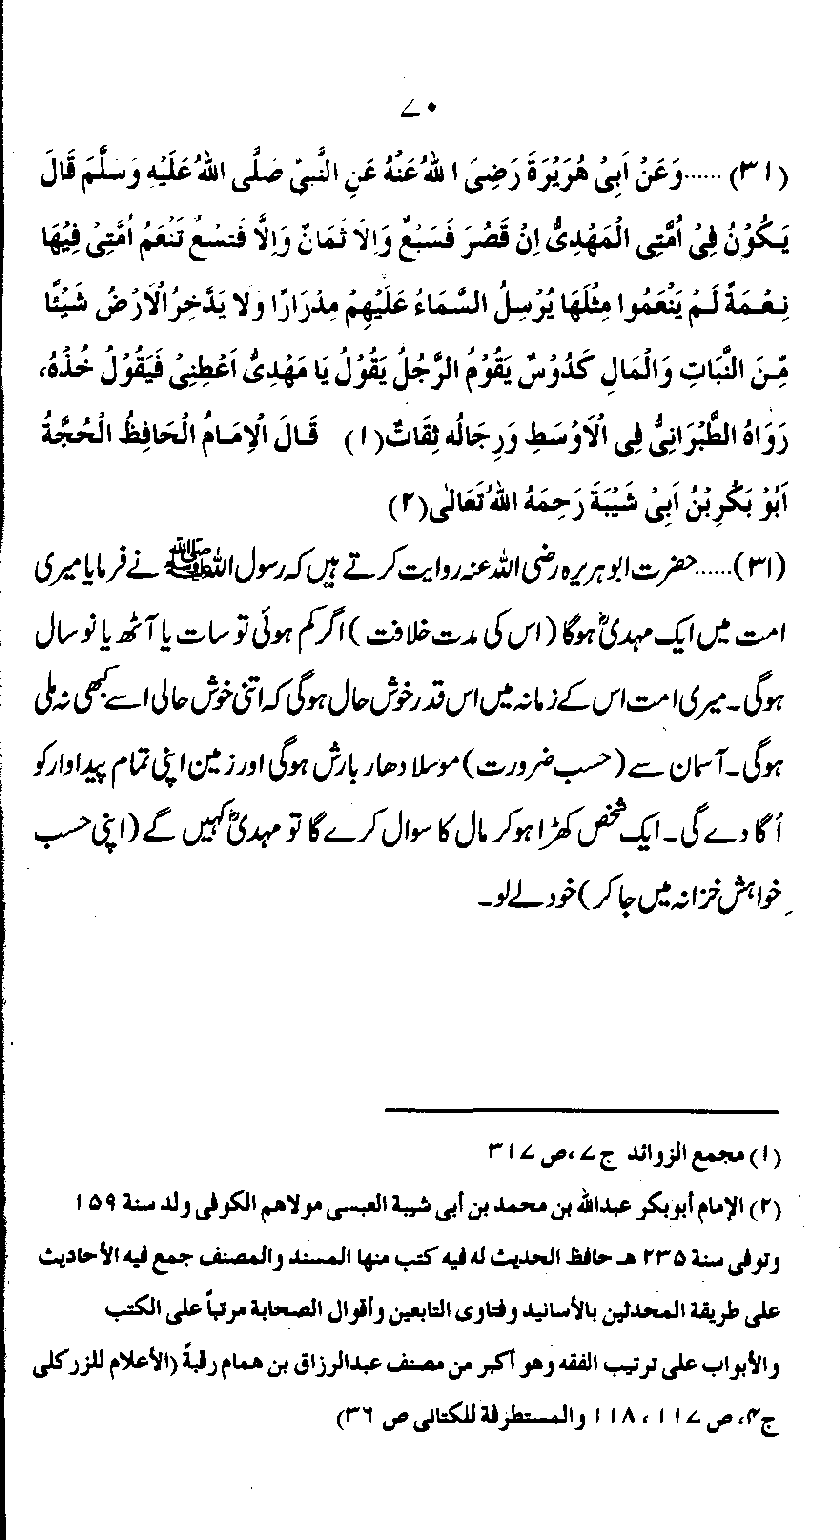 ۷۰
(۳۱)......وَعَنْ اَبِیْ هُرَیْرَةَ رَضِیَ اللهُ عَنْهُ عَنِ النَّبِیِّ صَلَّی اللهُ عَلَیْهِ وَسَلَّمَ قَالَ
یَکُوْنُ فِیْ اُمَّتِی الْمَهْدِیُّ اِنْ قَصُرَ فَسَبْعٌ وَاِلَّا ثَمَانٌ وَاِلَّا فَتِسْعٌ تَنْعَمُ اُمَّتِیْ فِیْهَا
نِعْمَةً لَمْ یَنْعَمُوا مِثْلَهَا یُرْسِلُ السَّمَاءُ عَلَیْهِمْ مِدْرَارًا وَلَا یَدَّخِرُ الْاَرْضُ شَیْئًا
مِّنَ النَّبَاتِ وَالْمَالِ کَدُوْسٌ یَقُوْمُ الرَّجُلُ یَقُوْلُ یَا مَهْدِیُّ اَعْطِنِیْ فَیَقُوْلُ خُذْهُ،
رَوَاهُ الطَّبْرَانِیُّ فِی الْاَوْسَطِ وَرِجَالُه ثِقَاتٌ(۱) قَالَ الْاِمَامُ الْحَافِظُ الْحُجَّةُ
اَبُوْ بَکْرِ بْنُ اَبِیْ شَیْبَةَ رَحِمَهُ اللهُ تَعَالٰی(۲)
(۳۱)......حضرت ابو ہریرہ رضی اللہ عنہ روایت کرتے ہیں کہ رسول اللہ ﷺ نے فرمایا میری
امت میں ایک مہدیؓ ہوگا (اس کی مدت خلافت) اگر کم ہوئی تو سات یا آٹھ یا نو سال
ہوگی۔ میری امت اس کے زمانہ میں اس قدر خوش حال ہوگی کہ اتنی خوش حالی اسے کبھی نہ ملی
ہوگی۔ آسمان سے (حسب ضرورت) موسلا دھار بارش ہوگی اور زمین اپنی تمام پیداوار کو
اُگا دے گی۔ ایک شخص کھڑا ہو کر مال کا سوال کرے گا تو مہدیؓ کہیں گے (اپنی حسب
خواہش خزانہ میں جا کر) خود لے لو۔
(۱) مجمع الزوائد ج۷، ص ۳۱۷
(۲) الإمام أبوبکر عبدالله بن محمد بن أبی شیبة العبسی مولاهم الکوفی ولد سنة ۱۵۹
وتوفی سنة ۲۳۵ هـ حافظ الحدیث له فیه کتب منها المسند والمصنف جمع فیه الأحادیث
علی طریقة المحدثین بالأسانید وفتاوی التابعین وأقوال الصحابة مرتباً علی الکتب
والأبواب علی ترتیب الفقه وهو أکبر من مصنف عبدالرزاق بن همام رتبةً (الأعلام للزرکلی
ج۴، ص ۱۱۷، ۱۱۸ والمستطرفة للکتانی ص ۳۶)